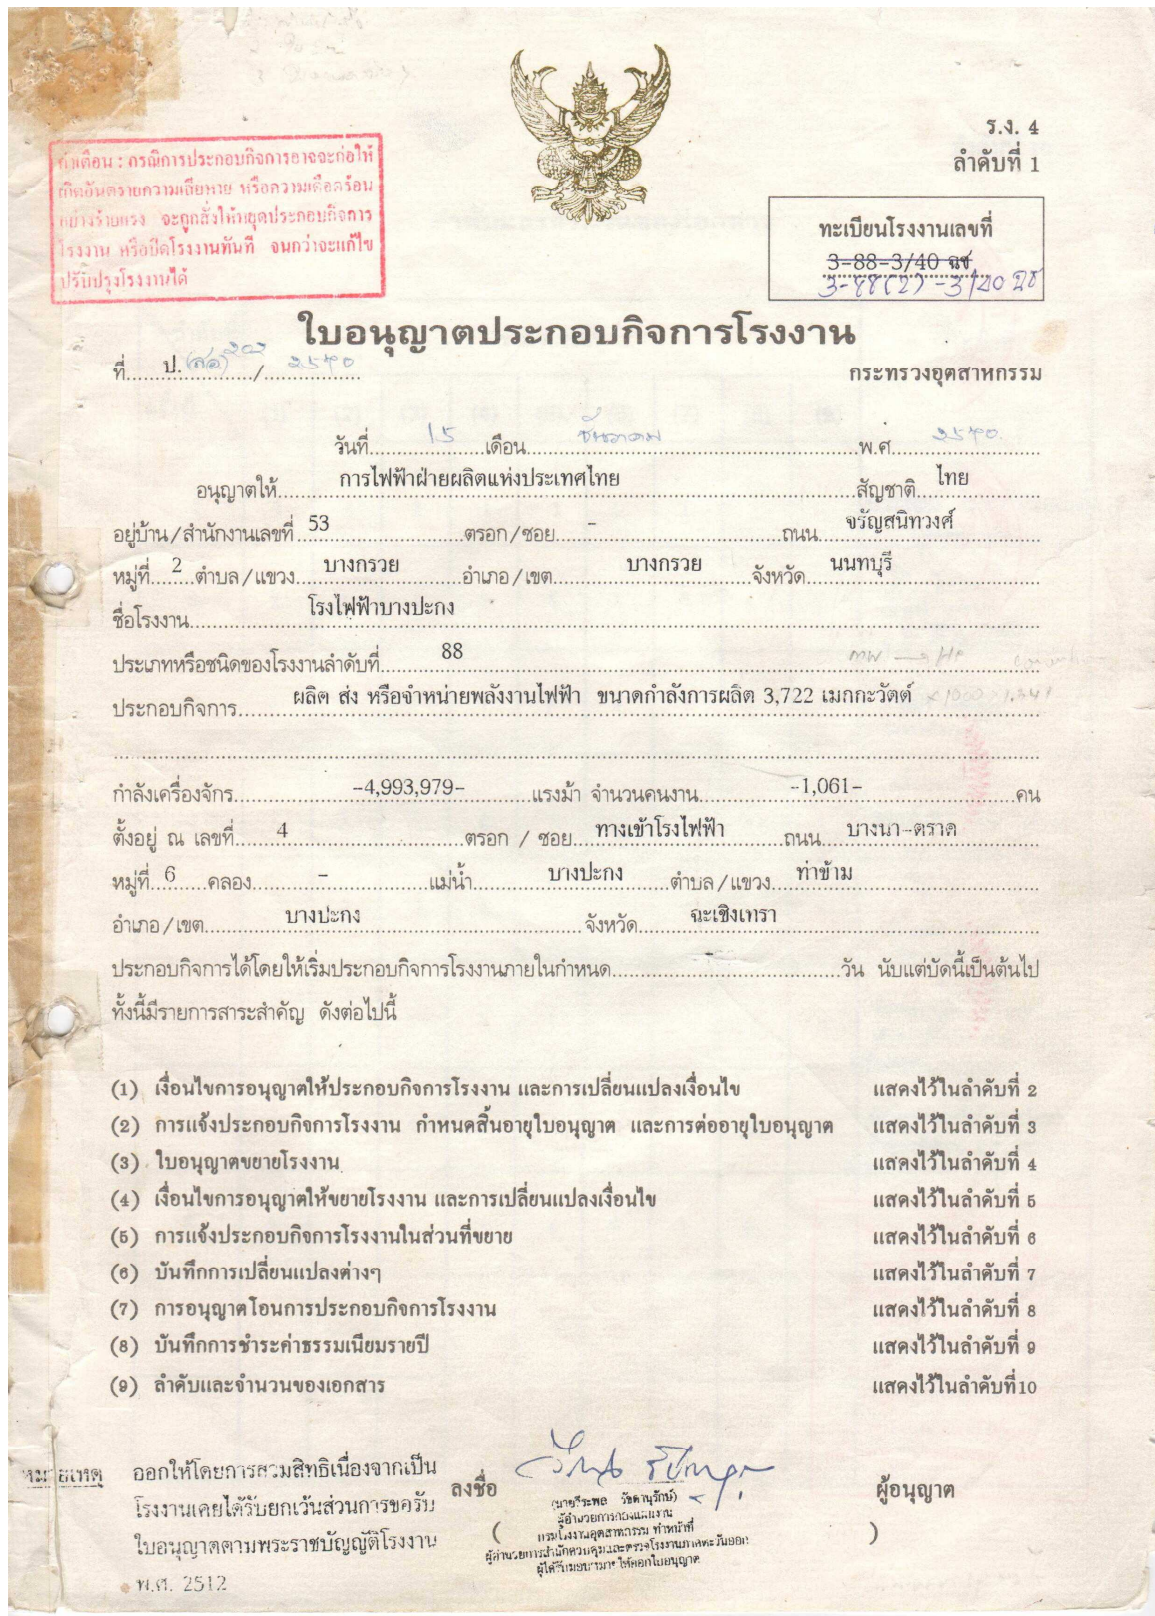 ร.ง. 4
ลำดับที่ 1
คำเตือน : กรณีการประกอบกิจการอาจจะก่อให้
เกิดอันตรายความเสียหาย หรือความเดือดร้อน
อย่างร้ายแรง จะถูกสั่งให้หยุดประกอบกิจการ
โรงงาน หรือปิดโรงงานทันที จนกว่าจะแก้ไข
ปรับปรุงโรงงานได้
ทะเบียนโรงงานเลขที่
3-88-3/40 ฉช
3-88(2)-3/40 ฉช
ใบอนุญาตประกอบกิจการโรงงาน
ที่ ป. (สอ) ๒๐๒ / ๒๕๔๐
กระทรวงอุตสาหกรรม
วันที่ 15 เดือน ธันวาคม พ.ศ. ๒๕๔๐
อนุญาตให้ การไฟฟ้าฝ่ายผลิตแห่งประเทศไทย สัญชาติ ไทย
อยู่บ้าน/สำนักงานเลขที่ 53 ตรอก/ซอย - ถนน จรัญสนิทวงศ์
หมู่ที่ 2 ตำบล/แขวง บางกรวย อำเภอ/เขต บางกรวย จังหวัด นนทบุรี
ชื่อโรงงาน โรงไฟฟ้าบางปะกง
ประเภทหรือชนิดของโรงงานลำดับที่ 88
ประกอบกิจการ ผลิต ส่ง หรือจำหน่ายพลังงานไฟฟ้า ขนาดกำลังการผลิต 3,722 เมกกะวัตต์
กำลังเครื่องจักร -4,993,979- แรงม้า จำนวนคนงาน -1,061- คน
ตั้งอยู่ ณ เลขที่ 4 ตรอก / ซอย ทางเข้าโรงไฟฟ้า ถนน บางนา-ตราด
หมู่ที่ 6 คลอง - แม่น้ำ บางปะกง ตำบล/แขวง ท่าข้าม
อำเภอ/เขต บางปะกง จังหวัด ฉะเชิงเทรา
ประกอบกิจการได้โดยให้เริ่มประกอบกิจการโรงงานภายในกำหนด - วัน นับแต่บัดนี้เป็นต้นไป
ทั้งนี้มีรายการสาระสำคัญ ดังต่อไปนี้
(1) เงื่อนไขการอนุญาตให้ประกอบกิจการโรงงาน และการเปลี่ยนแปลงเงื่อนไข แสดงไว้ในลำดับที่ 2
(2) การแจ้งประกอบกิจการโรงงาน กำหนดสิ้นอายุใบอนุญาต และการต่ออายุใบอนุญาต แสดงไว้ในลำดับที่ 3
(3) ใบอนุญาตขยายโรงงาน แสดงไว้ในลำดับที่ 4
(4) เงื่อนไขการอนุญาตให้ขยายโรงงาน และการเปลี่ยนแปลงเงื่อนไข แสดงไว้ในลำดับที่ 5
(5) การแจ้งประกอบกิจการโรงงานในส่วนที่ขยาย แสดงไว้ในลำดับที่ 6
(6) บันทึกการเปลี่ยนแปลงต่างๆ แสดงไว้ในลำดับที่ 7
(7) การอนุญาตโอนการประกอบกิจการโรงงาน แสดงไว้ในลำดับที่ 8
(8) บันทึกการชำระค่าธรรมเนียมรายปี แสดงไว้ในลำดับที่ 9
(9) ลำดับและจำนวนของเอกสาร แสดงไว้ในลำดับที่ 10
หมายเหตุ ออกให้โดยการสวมสิทธิเนื่องจากเป็น
โรงงานเคยได้รับยกเว้นส่วนการขอรับ
ใบอนุญาตตามพระราชบัญญัติโรงงาน
พ.ศ. 2512
ลงชื่อ ผู้อนุญาต
(นายวีระพล รัชตานุรักษ์)
ผู้อำนวยการกองแผนงาน
กรมโรงงานอุตสาหกรรม ทำหน้าที่
ผู้อำนวยการสำนักควบคุมและตรวจโรงงานภาคตะวันออก
ผู้ได้รับมอบหมายให้ออกใบอนุญาต